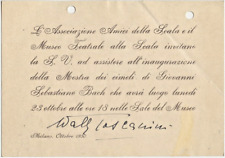 L'Associazione Amici della Scala e il
Museo Teatrale alla Scala invitano
la S. V. ad assistere all'inaugurazione
della Mostra dei cimeli di Giovanni
Sebastiano Bach che avrà luogo lunedì
23 ottobre alle ore 18 nelle Sale del Museo
Wally Toscanini
Milano Ottobre